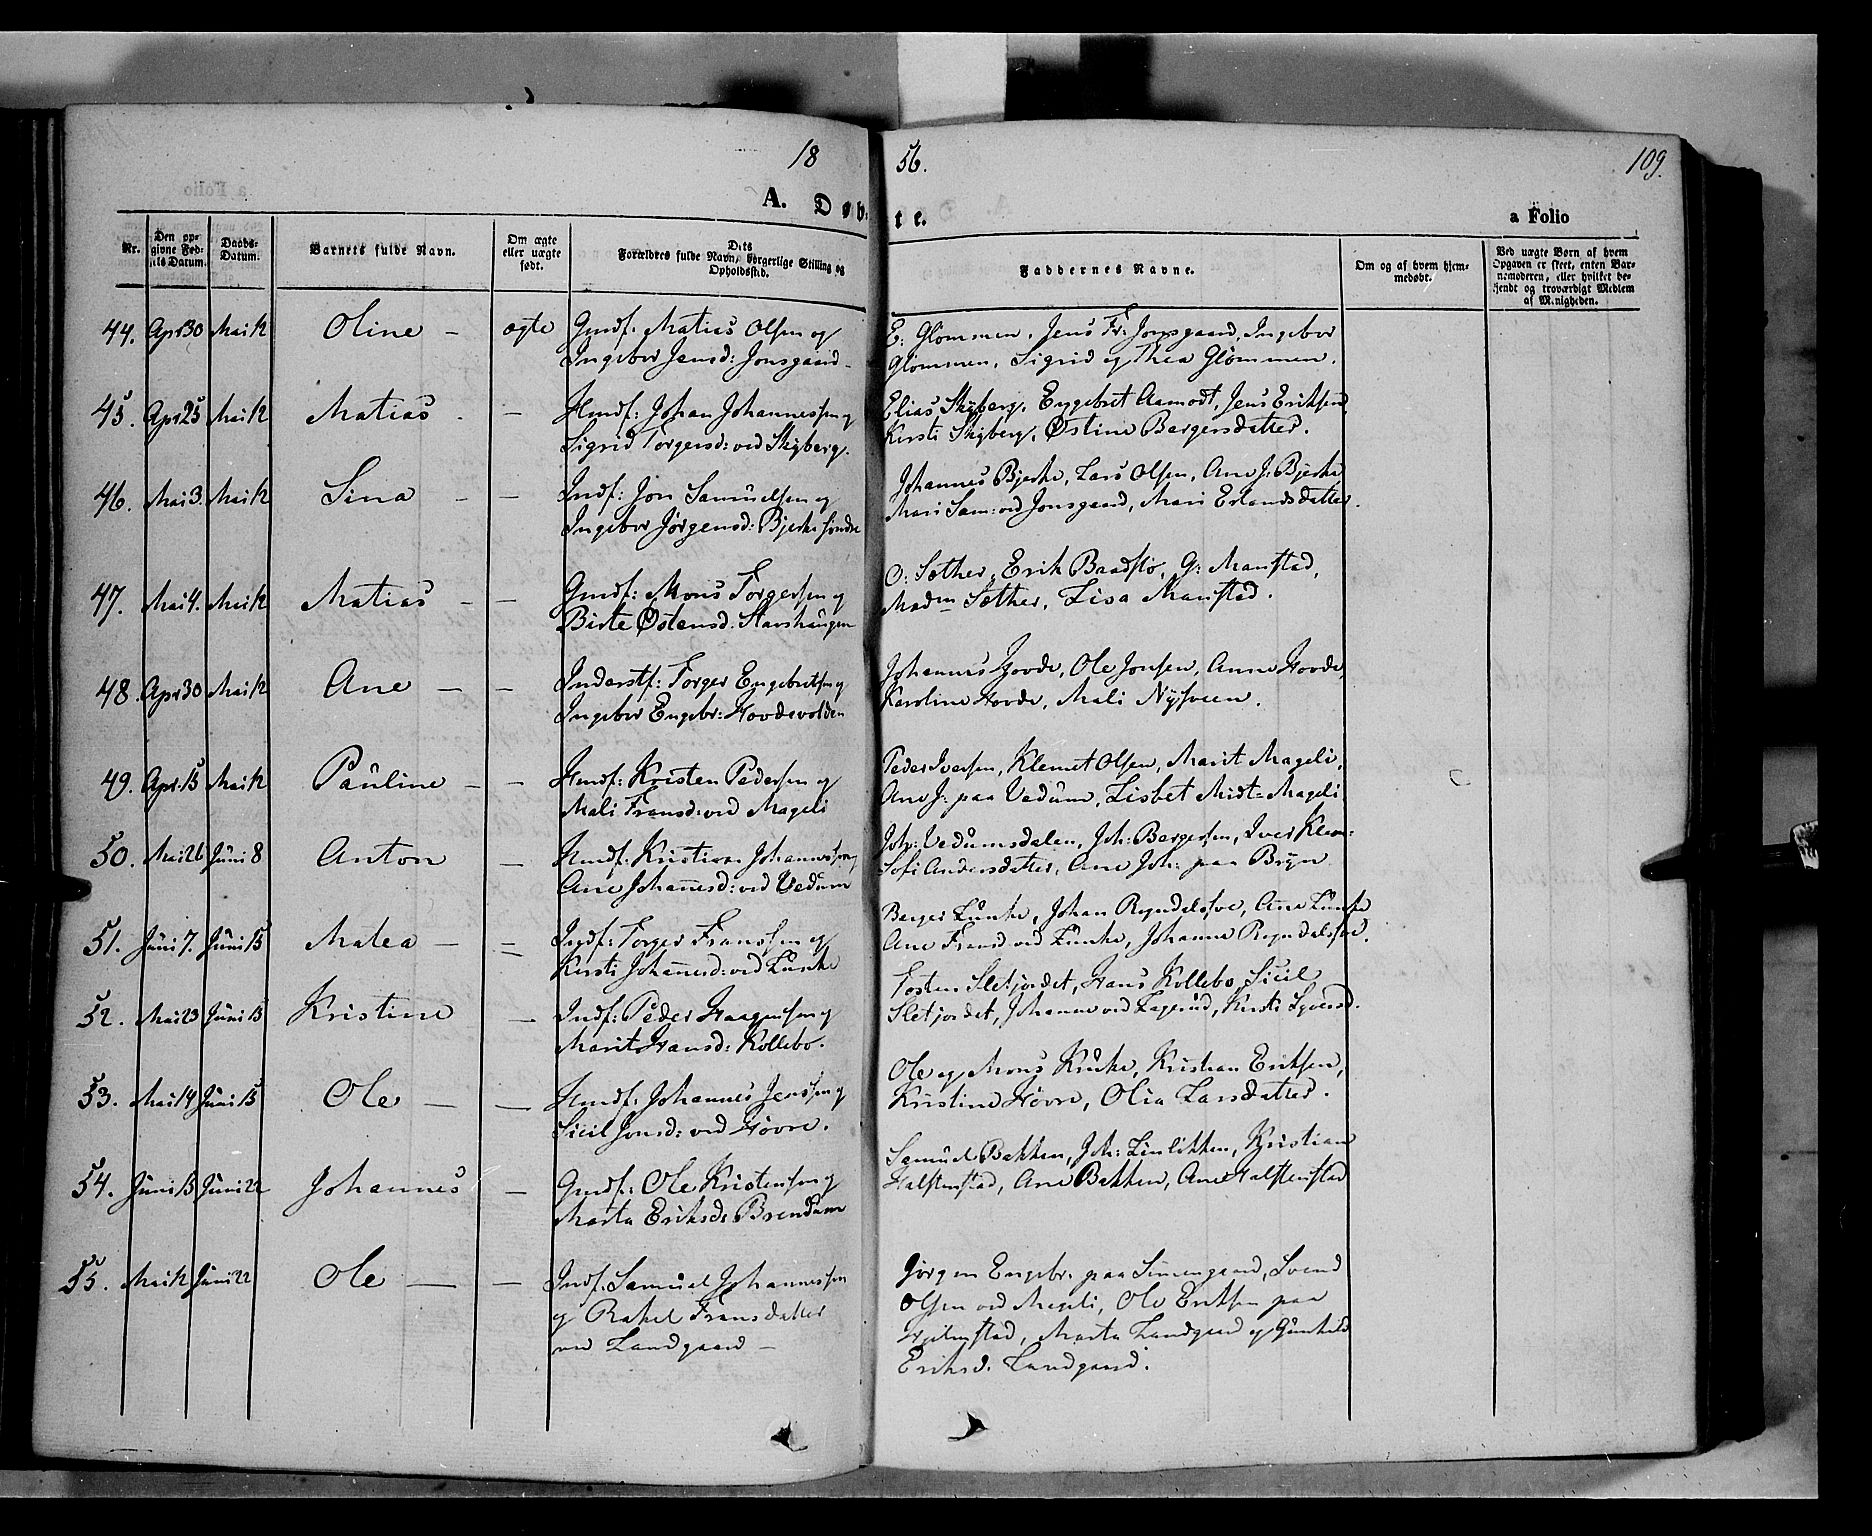 18
56.
109.
A. Døb-
te.
a Folio
Nr.
Den op-
givne Fød-
sels Datum.
Daabs-
Datum.
Barnets fulde Navn.
Om ægte
eller uægte
født.
Dets
Forældres fulde Navn, borgerlige Stilling og
Opholdssted.
Faddernes Navne.
Om og af hvem hjem-
medøbt.
Ved uægte Børn af hvem
Opgaven er skeet, enten Bar-
nemoderen, eller hvilket be-
kjendt og troværdigt Medlem
af Menigheden.
44. Apr 30 Mai 12 Oline – ægte Gmdf: Matias Olsen og
Ingebor Jensd: Jonsgaard
E. Glommen, Jens Fr: Jonsgaard, Ingebor
Glommen, Sigrid og Thea Glommen.
45. Apr 25 Mai 12 Matias – – Hmdf: Johan Johannessen og
Sigrid Torgersd: ved Skyberg.
Elias Skyberg, Engebret Aamodt, Jens Eriksen
Kersti Skyberg, Østine Bergersdatter.
46. Mai 3. Mai 12 Sina – – Indf: Jon Samuelsen og
Ingebor Jørgensd: Bjerke søndre
Johannes Bjerke, Lars Olsen, Ane J: Bjerke
Mari Sam: ved Jonsgaard, Mari Erlandsdatter.
47. Mai 4. Mai 12 Matias – – Gmdf: Mons Torgersen og
Birte Østensd: Stavshaugen
O: Sæther, Erik Baadstø, G: Manstad,
Madm Sæther, Lisa Manstad.
48. Apr 30 Mai 12 Ane – – Inderstf: Torger Engebretsen og
Ingebor Engebr: Hovdevolden
Johannes Hovde, Ole Jonsen, Anne Hovde,
Karoline Hovde, Mali Nysveen.
49. Apr. 15 Mai 12 Pauline – – Hmdf: Kristen Pedersen og
Mali Fransd: ved Mageli
Peder Iversen, Klemet Olsen, Marit Mageli,
Ane J: paa Vedum, Lisbet Midt-Mageli
50. Mai 26 Juni 8 Anton – Hmdf: Kristian Johannessen og
Ane Johannesd: ved Vedum
Joh: Vedumsdalen, Joh: Bergersen, Iver Klem:
Sofi Andersdatter, Ane Joh: paa Bryn
51. Juni 7. Juni 15 Matea – – Indf: Torger Franssen og
Kersti Johannesd: ved Lunke
Berger Lunke, Johan Ryndelsøe, Ane Lunke
Ane Fransd ved Lunke, Johanne Ryndelsøe.
52. Mai 23 Juni 15 Kristine – Indf: Peder Haagensen og
Marit Hansd: Kollebo.
Tosten Sletjordet, Hans Kollebo, Sicil
Sletjordet, Johanne ved Fagerud, Kersti Syversd.
53. Mai 14 Juni 15 Ole – – Hmdf: Johannes Jenssen og
Sicil Jonsd: ved Høvre.
Ole og Mons Kruke, Kristian Eriksen,
Kristine Høvre, Olia Larsdatter.
54. Juni 15 Juni 22 Johannes – Gmdf: Ole Kristensen og
Marta Eriksd: Brendum
Samuel Bakken, Joh: Linlikken, Kristian
Halstenstad, Ane Bakken, Ane Halstenstad
55. Mai 12 Juni 22 Ole – – Indf: Samuel Johannessen
og Rakel Fransdatter
ved Landgaard –
Jørgen Engebr. paa Simengaard, Svend
Olsen ved Mageli, Ole Eriksen paa
Hjelmstad, Marta Landgaard og Gunhild
Eriksd. Landgaard.